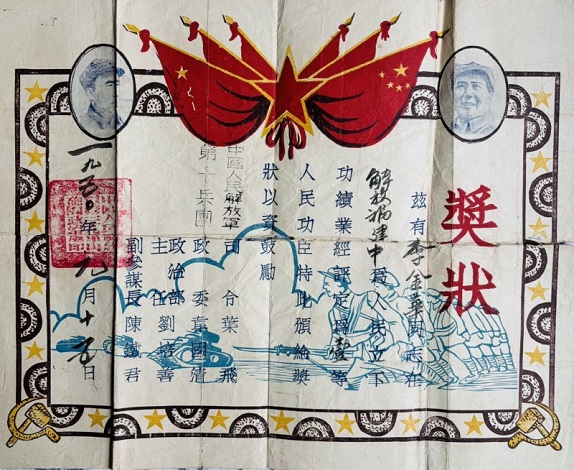 獎狀
茲有李金華同志在
解放福建中為人民立下
功績業經評定為壹等
人民功臣特此頒給獎
狀以資鼓勵
中國人民解放軍
第十兵團
司令葉飛
政委韋國清
政治部主任劉培善
副參謀長陳鐵君
一九五〇年九月十五日
八一